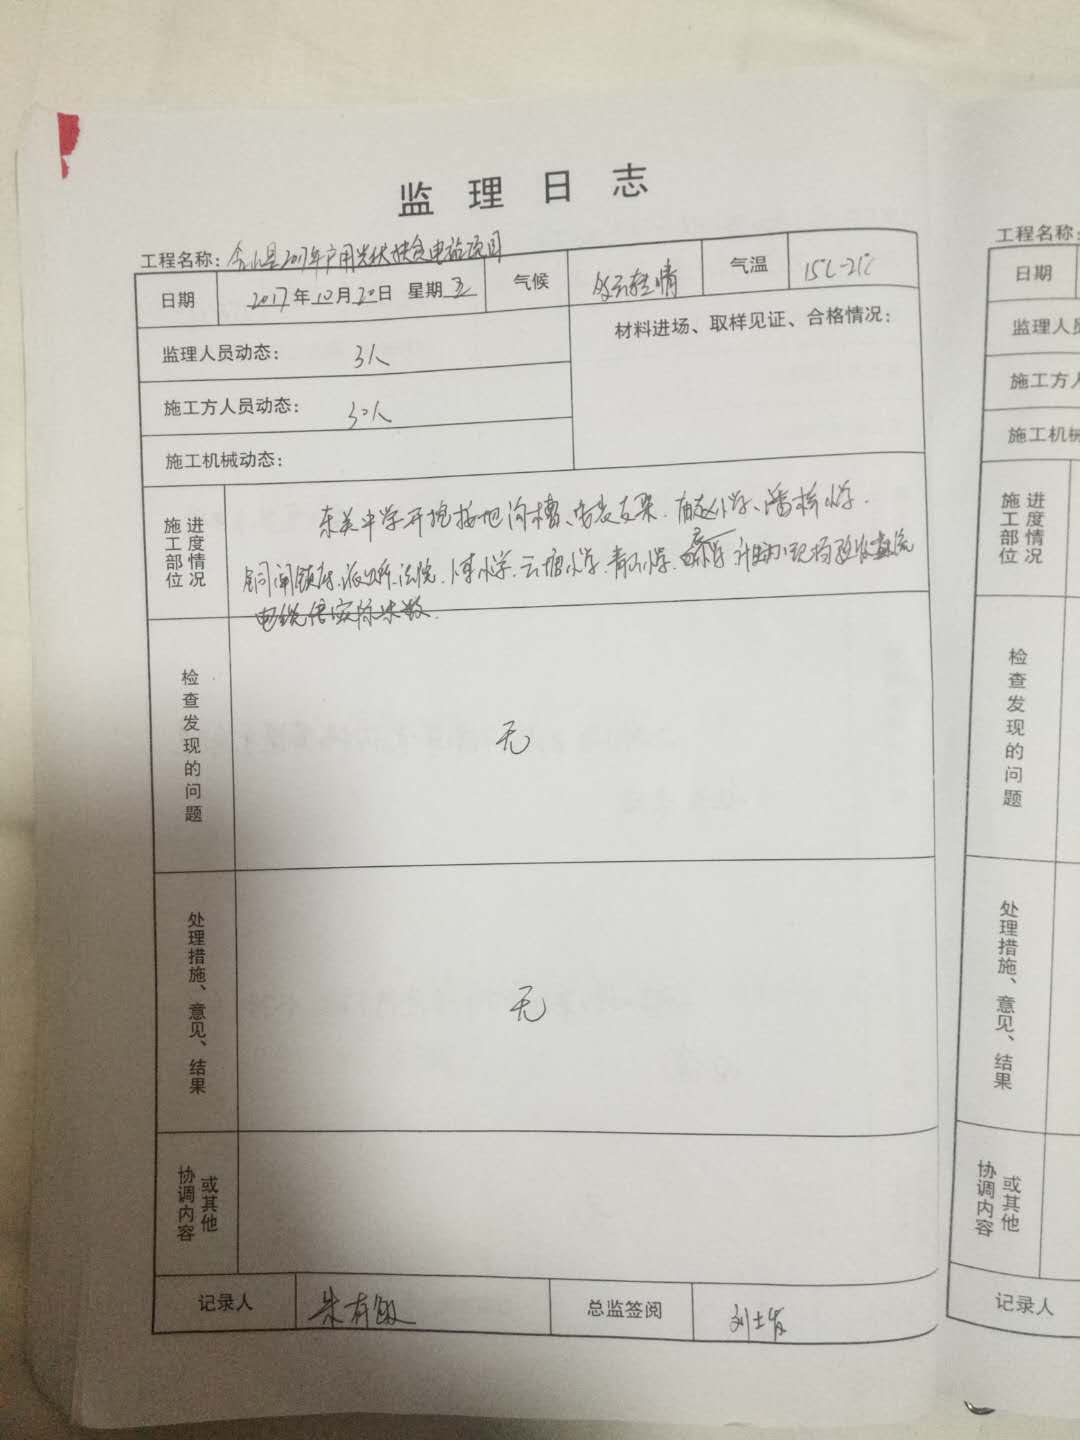 监理日志
工程名称：含山县2017年户用光伏扶贫电站项目
日期 2017年10月20日 星期五 气候 多云转晴 气温 15℃-21℃
监理人员动态： 3人
材料进场、取样见证、合格情况：
施工方人员动态： 30人
施工机械动态：
施工部位
进度情况
东关中学开挖接地沟槽、安装支架.
小学、潘桥小学.
铜闸镇府、派出所、法院、小学、云塘小学、青山小学、现场验收直流
电缆实际米数.
检查发现的问题
无
处理措施、意见、结果
无
协调内容
或其他
记录人 朱有 总监签阅 刘士发
工程名称：
日期
监理人员
施工方人
施工机械
施工部位
进度情况
检查发现的问题
处理措施、意见、结果
协调内容
或其他
记录人